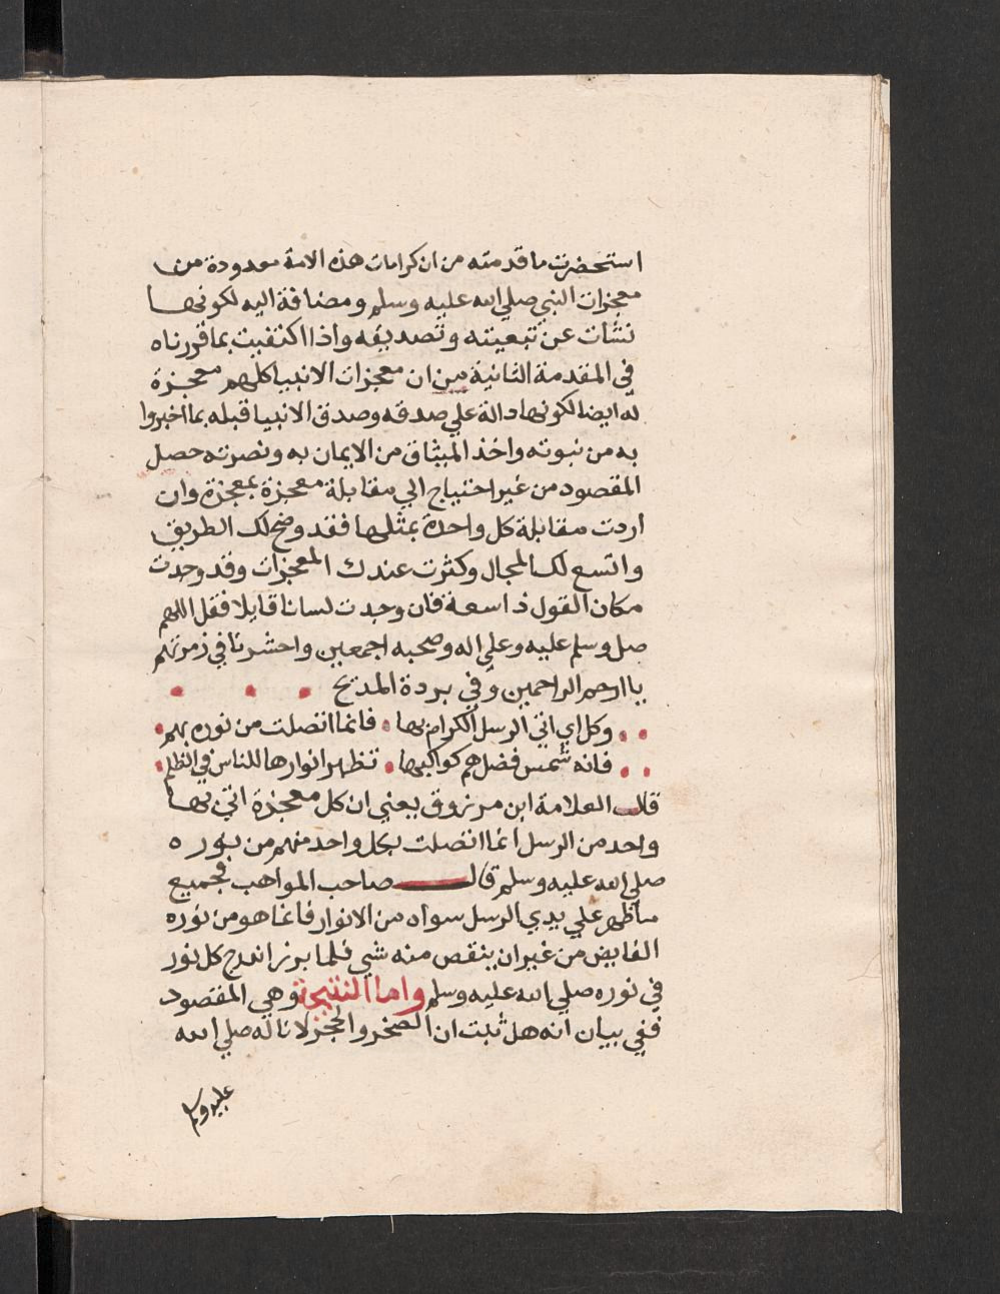 استحضرت ما قدمته من ان كرامات هذه الامة معدودة من
معجزات النبي صلي الله عليه وسلم ومضافة اليه لكونها
نشات عن تبعيته وتصديقه واذا اكتفيت بما قررناه
في المقدمة الثانية من ان معجزات الانبيا كلهم معجزة
له ايضا لكونها دالة علي صدقه وصدق الانبيا قبله بما اخبروا
به من نبوته واخذ الميثاق من الايمان به ونصرته حصل
المقصود من غير احتياج الي مقابلة معجزة بمعجزة وان
اردت مقابلة كل واحدة بمثلها فقد وضح لك الطريق
واتسع لك المجال وكثرت عندك المعجزات وقد وجدت
مكان القول ذا سعة فان وجدت لسانا قايلا فقل اللهم
صل وسلم عليه وعلي اله وصحبه اجمعين واحشرنا في زمرتهم
يا ارحم الراحمين وفي بردة المديح
وكل اي اتي الرسل الكرام بها فانما اتصلت من نوره بهم
فانه شمس فضل هم كواكبها تظهر انوارها للناس في الظلم
قال العلامة ابن مرزوق يعني ان كل معجزة اتي بها
واحد من الرسل انما اتصلت بكل واحد منهم من نوره
صلي الله عليه وسلم قال صاحب المواهب فجميع
ما ظهر علي يدي الرسل سواه من الانوار فانما هو من نوره
الفايض من غير ان ينقص منه شي فلما برز اندرج كل نور
في نوره صلي الله عليه وسلم واما النتيجة وهي المقصود
ففي بيان انه هل ثبت ان الصخر والحجر لانا له صلي الله
عليه وسلم